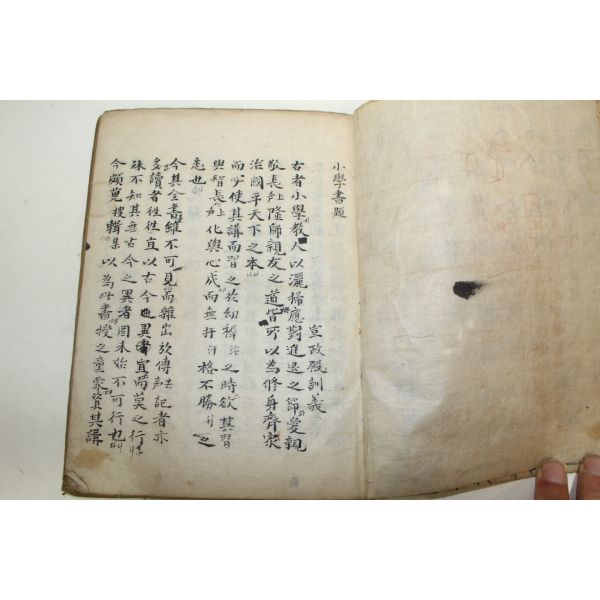 小學書題
宣政殿訓義
古者小學敎人以灑掃應對進退之節愛親
敬長隆師親友之道皆所以為修身齊家
治國平天下之本
而必使其講而習之於幼穉之時欲其習
與智長化與心成而無扞格不勝之
患也
今其全書雖不可見而雜出於傳記者亦
多讀者徃徃宜以古今異宜而莫之行
殊不知其無古今之異者固未始不可行也
今頗蒐輯以為此書授之童蒙資其講